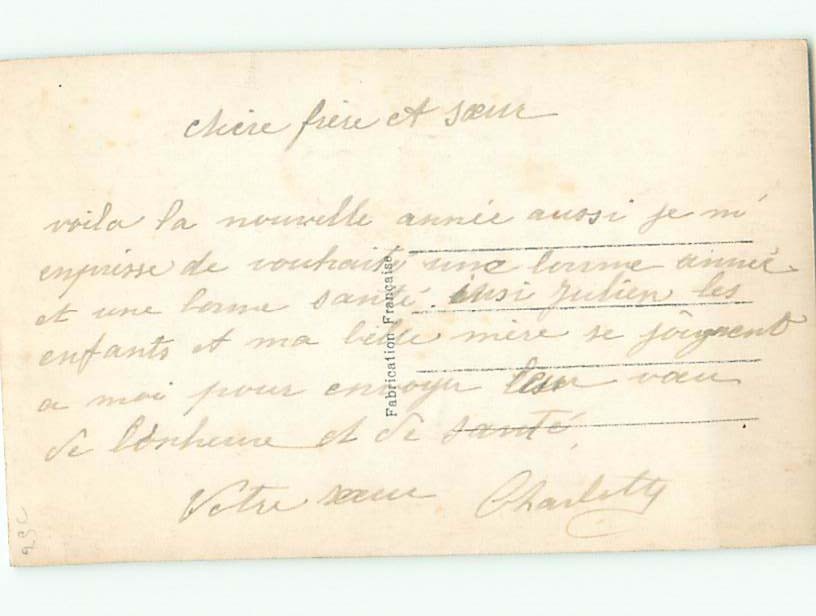 chère frère et sœur
voila la nouvelle année aussi je m'
enprisse de vouhaite une bonne année
et une bonne santé. insi Julien les
enfants et ma belle mère se joignent
a moi pour envoyer leur vœu
de bonheure et de santé,
Votre sœur Charlotte
Fabrication Française
23c